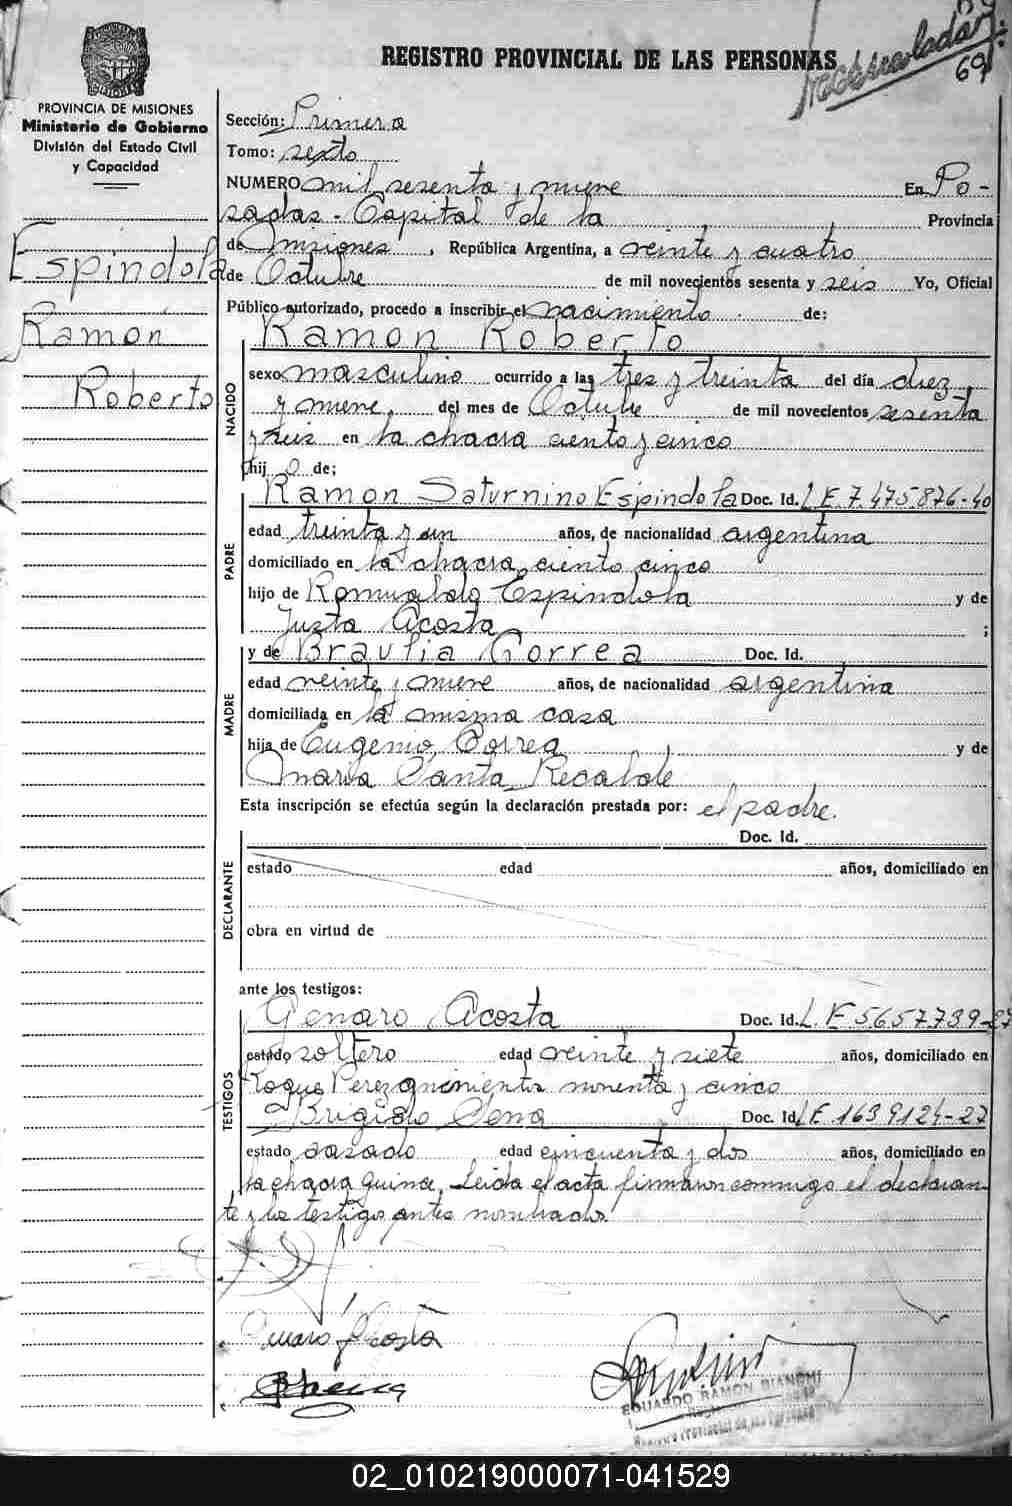 REGISTRO PROVINCIAL DE LAS PERSONAS
69
PROVINCIA DE MISIONES
Ministerio de Gobierno
División del Estado Civil
y Capacidad
Espindola
Ramon
Roberto
Sección: Primera
Tomo: sexto
NUMERO mil sesenta y nueve En Po-
sadas - Capital de la Provincia
de Misiones, República Argentina, a veinte y cuatro
de Octubre de mil novecientos sesenta y seis Yo, Oficial
Público autorizado, procedo a inscribir el nacimiento de:
Ramon Roberto
NACIDO
sexo masculino ocurrido a las tres y treinta del día diez
y nueve, del mes de Octubre de mil novecientos sesenta
y seis en la chacra ciento y cinco
hij o de;
PADRE
Ramon Saturnino Espindola Doc. Id. L.E. 7.475.876-40
edad treinta y un años, de nacionalidad argentina
domiciliado en la chacra ciento cinco
hijo de Romualdo Espindola y de
Justa Acosta ;
MADRE
y de Braulia Correa Doc. Id.
edad veinte y nueve años, de nacionalidad argentina
domiciliada en la misma casa
hija de Eugenio Correa, y de
Maria Santa Recalde
Esta inscripción se efectúa según la declaración prestada por: el padre.
DECLARANTE
Doc. Id.
estado edad años, domiciliado en
obra en virtud de
ante los testigos:
TESTIGOS
Genaro Acosta Doc. Id. L.E 5657739-27
estado soltero edad veinte y siete años, domiciliado en
Roque Perez quinientos noventa y cinco
Brigido Sena Doc. Id. L.E 1639124-27
estado casado edad cincuenta y dos años, domiciliado en
la chacra quince. Leida el acta firmaron conmigo el declaran-
te y los testigos antes nombrados
Genaro Acosta
EDUARDO RAMON BIANCHI
Registro Provincial de las Personas
02_010219000071-041529